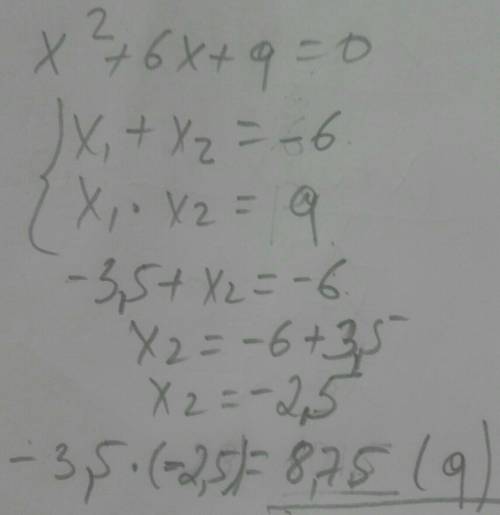 x² + 6x + 9 = 0
x₁ + x₂ = -6
x₁ · x₂ = 9
-3,5 + x₂ = -6
x₂ = -6 + 3,5
x₂ = -2,5
-3,5 · (-2,5) = 8,75 (9)